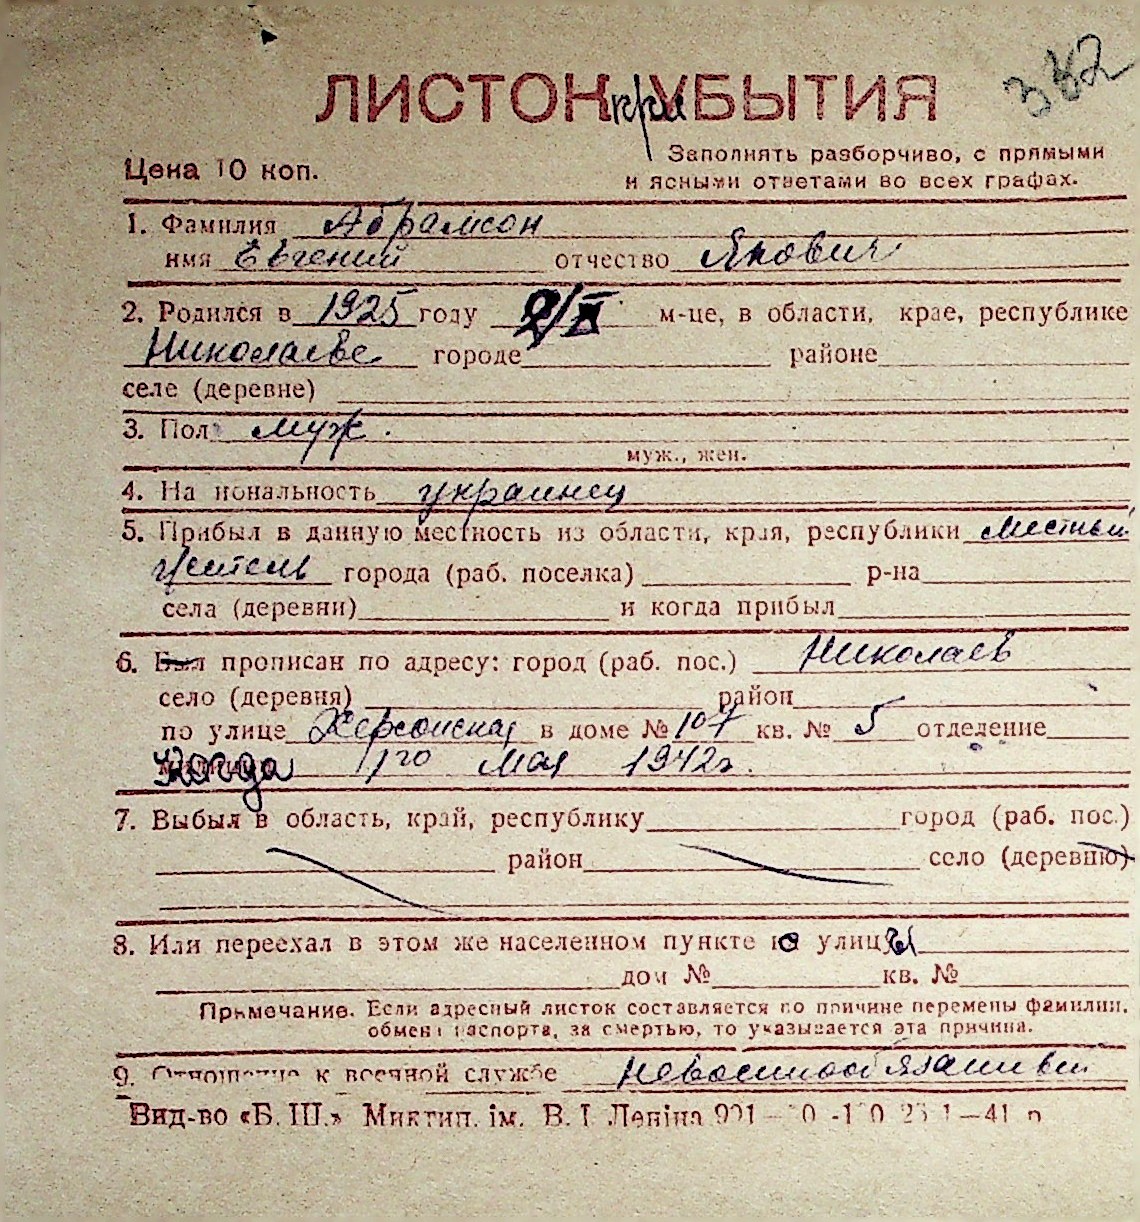 382
ЛИСТОК при УБЫТИЯ
Цена 10 коп.
Заполнять разборчиво, с прямыми
и ясными ответами во всех графах.
1. Фамилия Абрамсон
имя Евгений отчество Якович
2. Родился в 1925 году м-це, в области, крае, республике
Николаеве городе районе
селе (деревне)
3. Пол муж.
муж., жен.
4. Национальность украинец
5. Прибыл в данную местность из области, края, республики местный
житель города (раб. поселка) р-на
села (деревни) и когда прибыл
6. Был прописан по адресу: город (раб. пос.) Николаев
село (деревня) район
по улице Херсонская в доме № 107 кв. № 5 отделение
Когда 1го мая 1942г.
7. Выбыл в область, край, республику город (раб. пос.)
район село (деревню)
8. Или переехал в этом же населенном пункте с улицы
дом № кв. №
Примечание. Если адресный листок составляется по причине перемены фамилии,
обмена паспорта, за смертью, то указывается эта причина.
9. Отношение к военной службе невоеннообязанный
Вид-во «Б. Ш.» Миктип. ім. В. І. Леніна